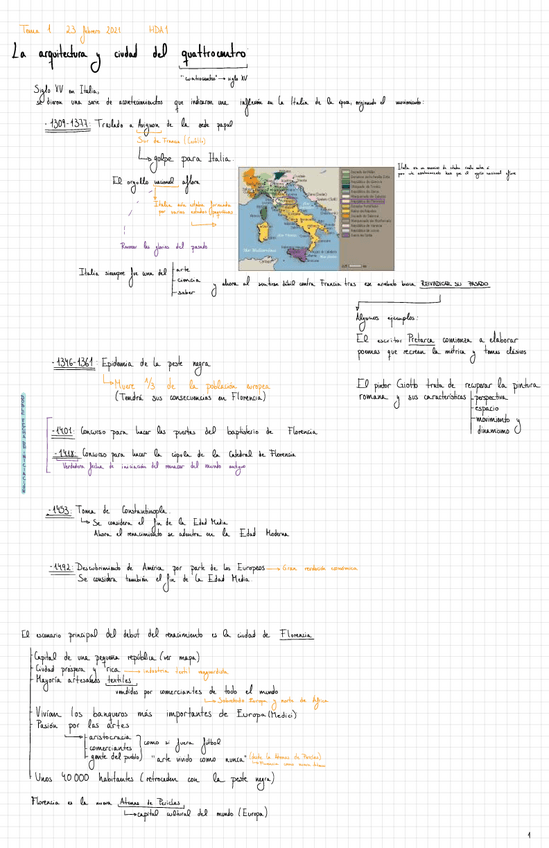 Tema 1 23 febrero 2021 HDA1
La arquitectura y ciudad del quattrocento
"cuatrocientos" → siglo XV
Siglo XV en Italia,
se dieron una serie de acontecimientos que indicaron una reflexión en la Italia de la época, originando el movimiento:
- 1309-1377: Traslado a Avignon de la sede papal
Sur de Francia
golpe para Italia.
El orgullo nacional aflora
Italia esta estaba formada
por varios estados
Recrear las glorias del pasado
Italia siempre fue una del
arte
ciencia
saber
y ahora al sentirse débil contra Francia tras ese arrebato busca REIVINDICAR SU PASADO
Algunos ejemplos:
El escritor Petrarca comienza a elaborar
poemas que recrean la métrica y temas clásicos
- 1346-1361: Epidemia de la peste negra
Muere 1/3 de la población europea
(Tendrá sus consecuencias en Florencia)
El pintor Giotto trata de recuperar la pintura
romana y sus características
perspectiva
espacio
movimiento y
dinamismo
- 1401: Concurso para hacer las puertas del baptisterio de Florencia
- 1418: Concurso para hacer la cúpula de la Catedral de Florencia
Verdadera fecha de iniciación del renacer del mundo antiguo
- 1453: Toma de Constantinopla.
Se considera el fin de la Edad Media
Ahora el renacimiento se adentra en la Edad Moderna
- 1492: Descubrimiento de América por parte de los Europeos → Gran revolución económica
Se considera también el fin de la Edad Media.
El escenario principal del debut del renacimiento es la ciudad de Florencia
Capital de una pequeña república (ver mapa)
Ciudad próspera y rica → industria textil vanguardista
Mayoría artesanos textiles
vendidos por comerciantes de todo el mundo
Sobretodo Europa y norte de África
Vivían los banqueros más importantes de Europa (Medici)
Pasión por las artes
aristocracia
comerciantes
gente del pueblo
como si fuera fútbol
"arte vivido como nunca" (desde la Atenas de Pericles)
Unos 40 000 habitantes (retroceden con la peste negra)
Florencia es la nueva Atenas de Pericles
capital cultural del mundo (Europa)
1